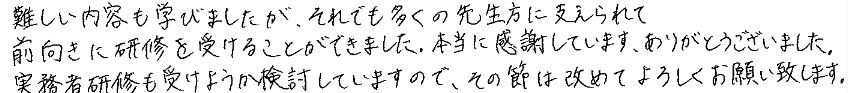 難しい内容も学びましたが、それでも多くの先生方に支えられて
前向きに研修を受けることができました。本当に感謝しています、ありがとうございました。
実務者研修も受けようか検討していますので、その節は改めてよろしくお願い致します。